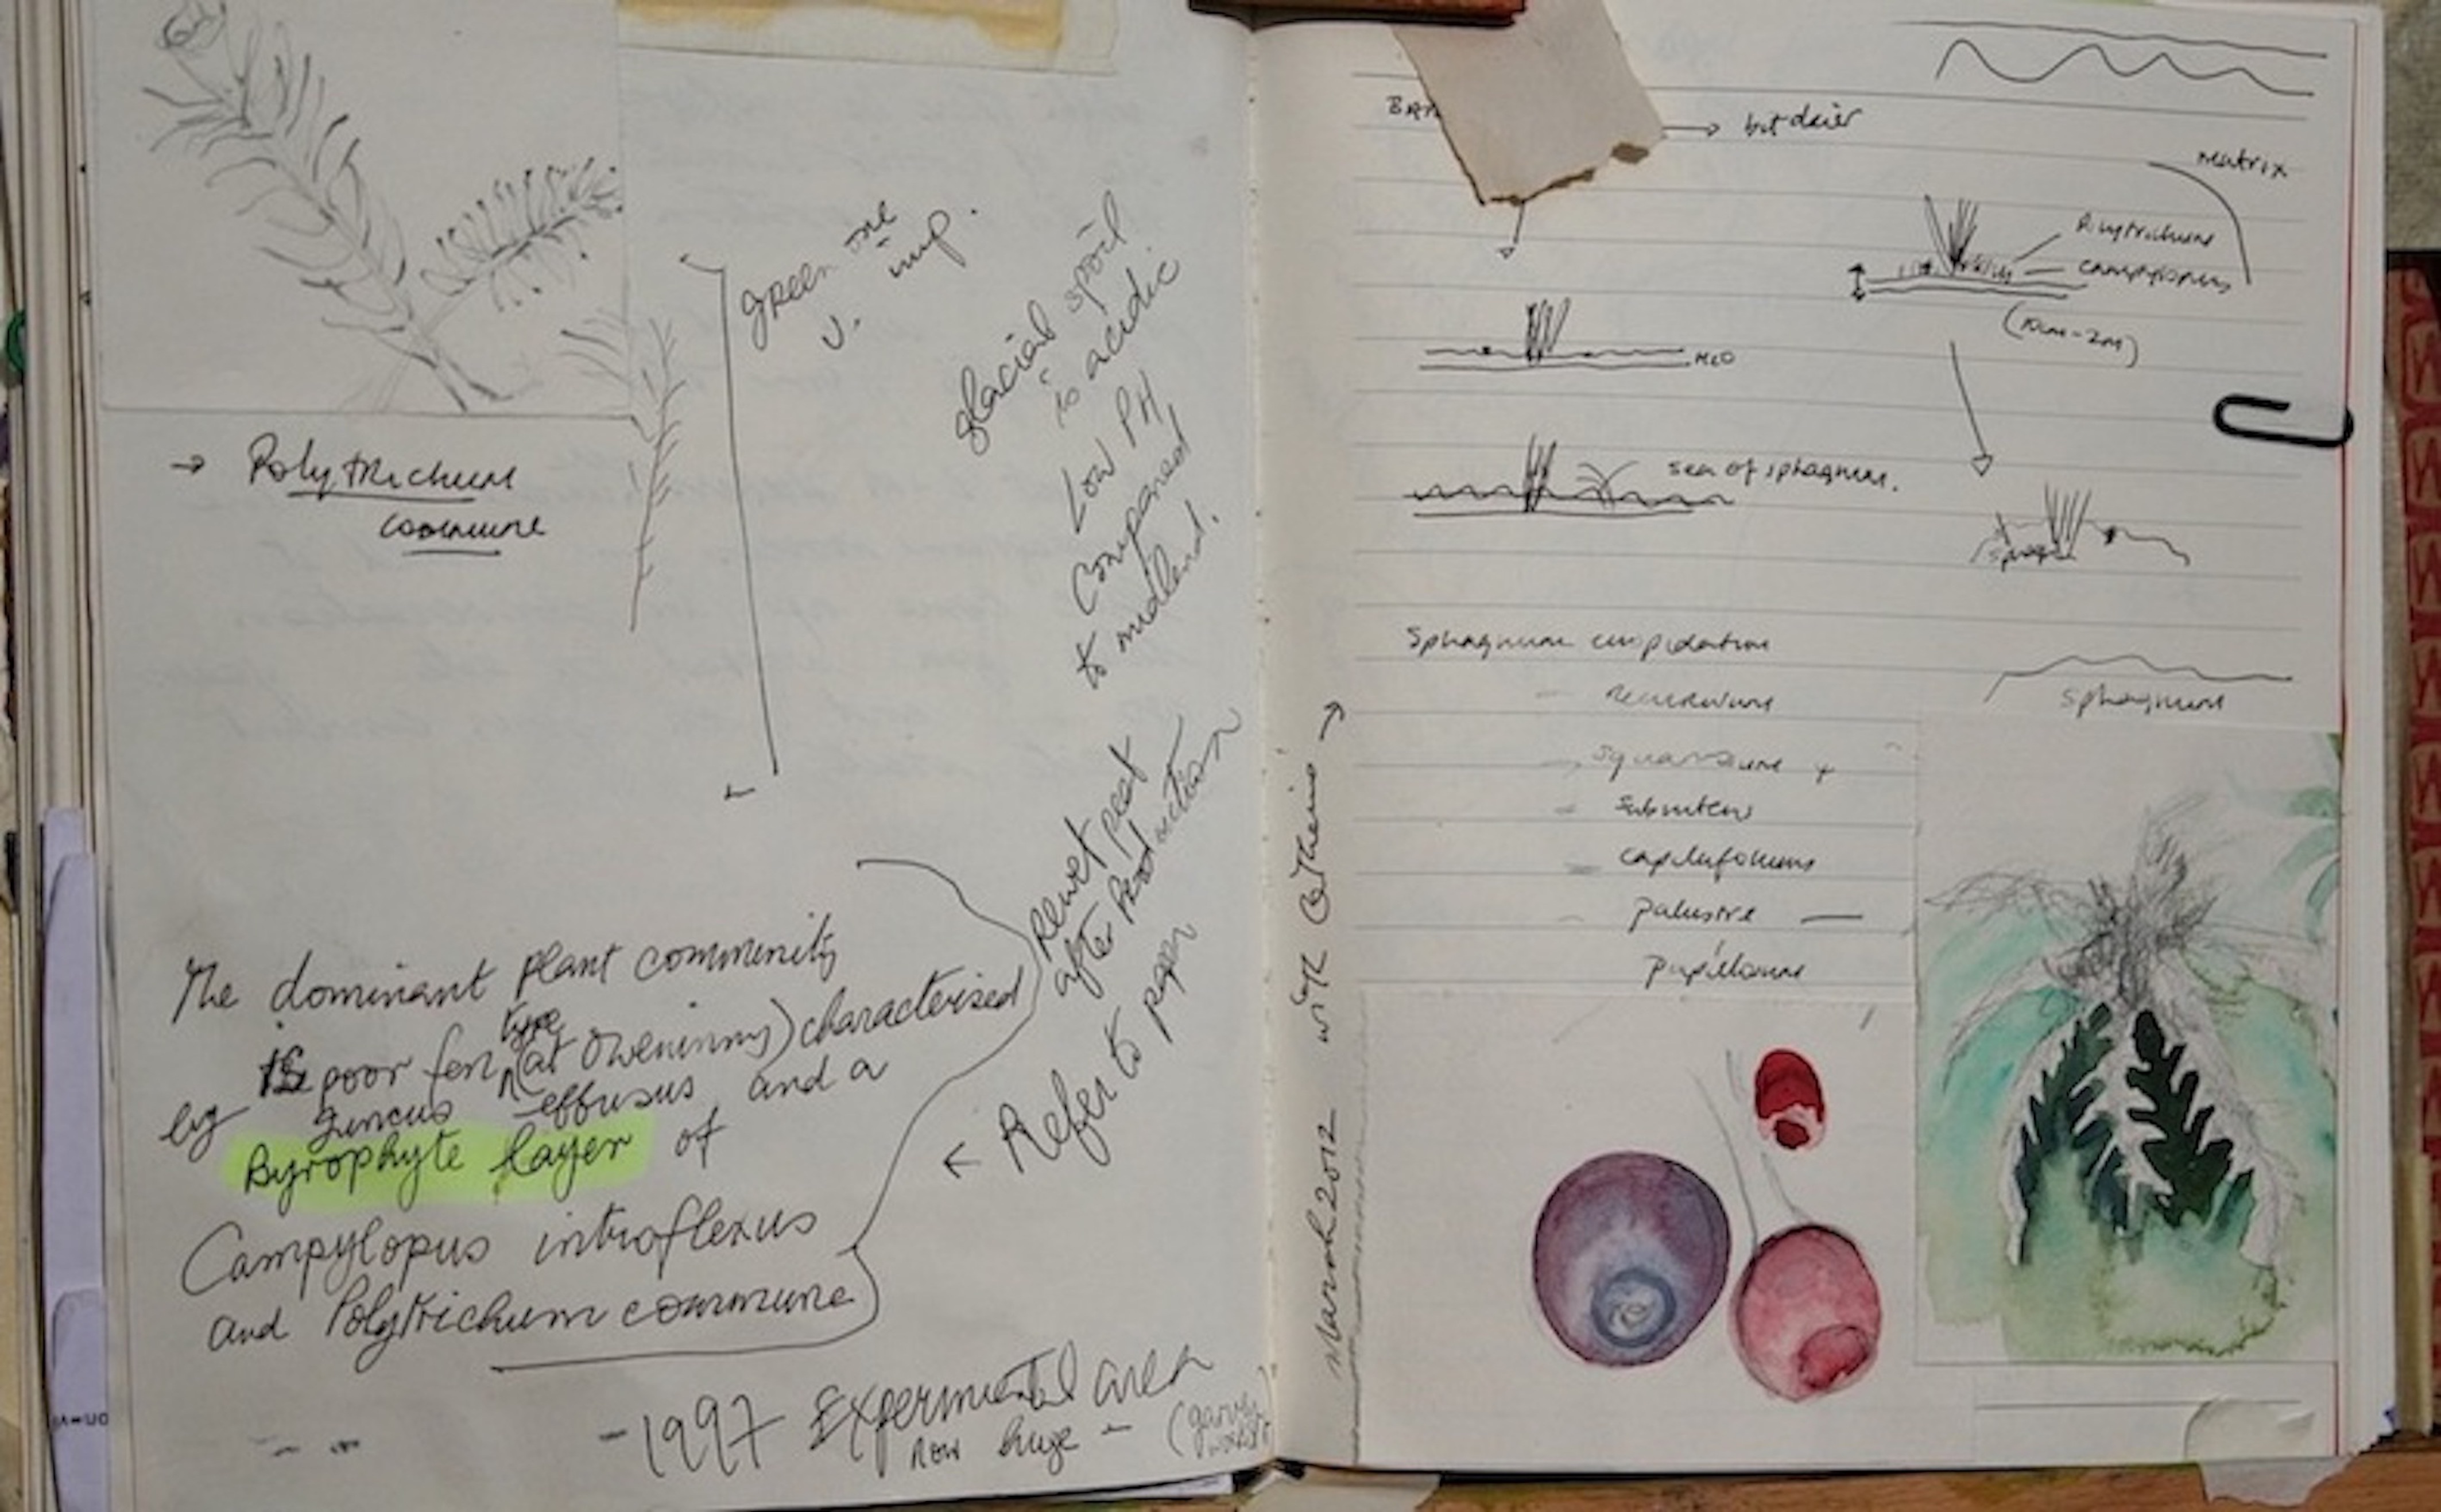 → Polytrichum
commune
green one
v. imp.
glacial spoil
is acidic
Low PH
Compared
to midland.
Rewet peat
after production
← Refer to paper
The dominant plant community
is poor fen type (at Oweninny) characterised
by Juncus effusus and a
Byrophyte layer of
Campylopus introflexus
and Polytrichum commune
- 1997 Experimental area
now huge -
March 2012 with Catherine →
→ but drier
matrix
Polytrichum
campylopus
H2O
sea of sphagnum.
sphag
Sphagnum cuspidatum
recurvum
squarrosum +
subnitens
capilifolium
palustre —
papillosum
sphagnum